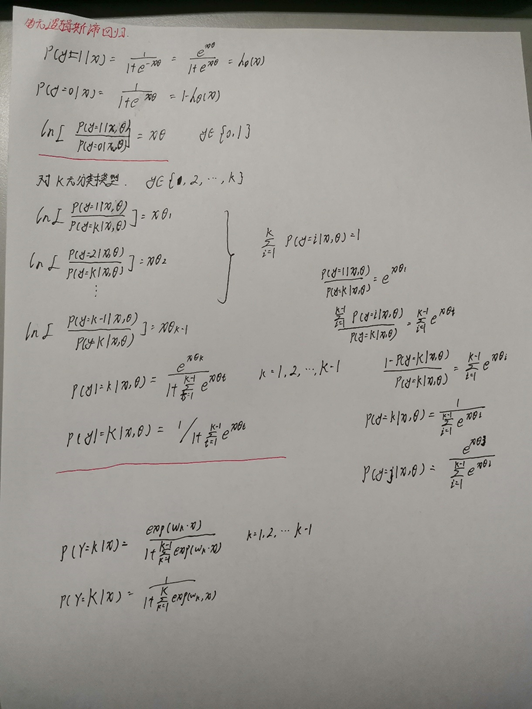 多元逻辑斯谛回归
P(y=1|x) = 1/(1+e^{-xθ}) = e^{xθ}/(1+e^{xθ}) = h_θ(x)
P(y=0|x) = 1/(1+e^{xθ}) = 1-h_θ(x)
ln[P(y=1|x,θ)/P(y=0|x,θ)] = xθ y∈{0,1}
对K元分类模型. y∈{1,2,…,k}
ln[P(y=1|x,θ)/P(y=k|x,θ)] = xθ_1
ln[P(y=2|x,θ)/P(y=k|x,θ)] = xθ_2
⋮
ln[P(y=k-1|x,θ)/P(y=k|x,θ)] = xθ_{k-1}
P(y|=k|x,θ) = e^{xθ_k}/(1+∑_{t=1}^{k-1} e^{xθ_t}) k=1,2,…,k-1
P(y|=K|x,θ) = 1/1+∑_{t=1}^{k-1} e^{xθ_t}
∑_{i=1}^{k} P(y=i|x,θ)=1
P(y=1|x,θ)/P(y=k|x,θ) = e^{xθ_1}
∑_{i=1}^{k-1} P(y=i|x,θ)/P(y=k|x,θ) = ∑_{i=1}^{k-1} e^{xθ_i}
1-P(y=k|x,θ)/P(y=k|x,θ) = ∑_{i=1}^{k-1} e^{xθ_i}
P(y=k|x,θ) = 1/∑_{i=1}^{k-1} e^{xθ_i}
P(y=j|x,θ) = e^{xθ_j}/∑_{i=1}^{k-1} e^{xθ_i}
P(Y=k|x) = exp(w_k·x)/(1+∑_{k=1}^{k-1} exp(w_k·x)) k=1,2,…k-1
P(Y=K|x) = 1/(1+∑_{k=1}^{K} exp(w_k,x))